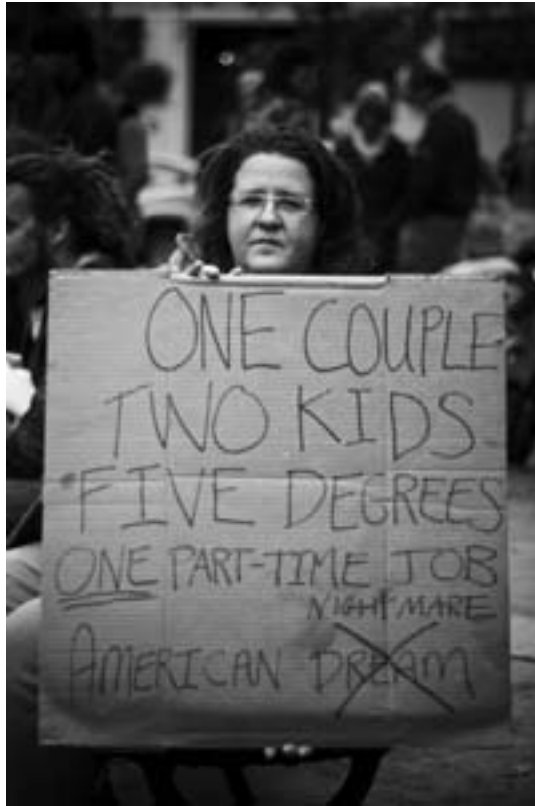 ONE COUPLE
TWO KIDS
FIVE DEGREES
ONE PART-TIME JOB
NIGHTMARE
AMERICAN DREAM